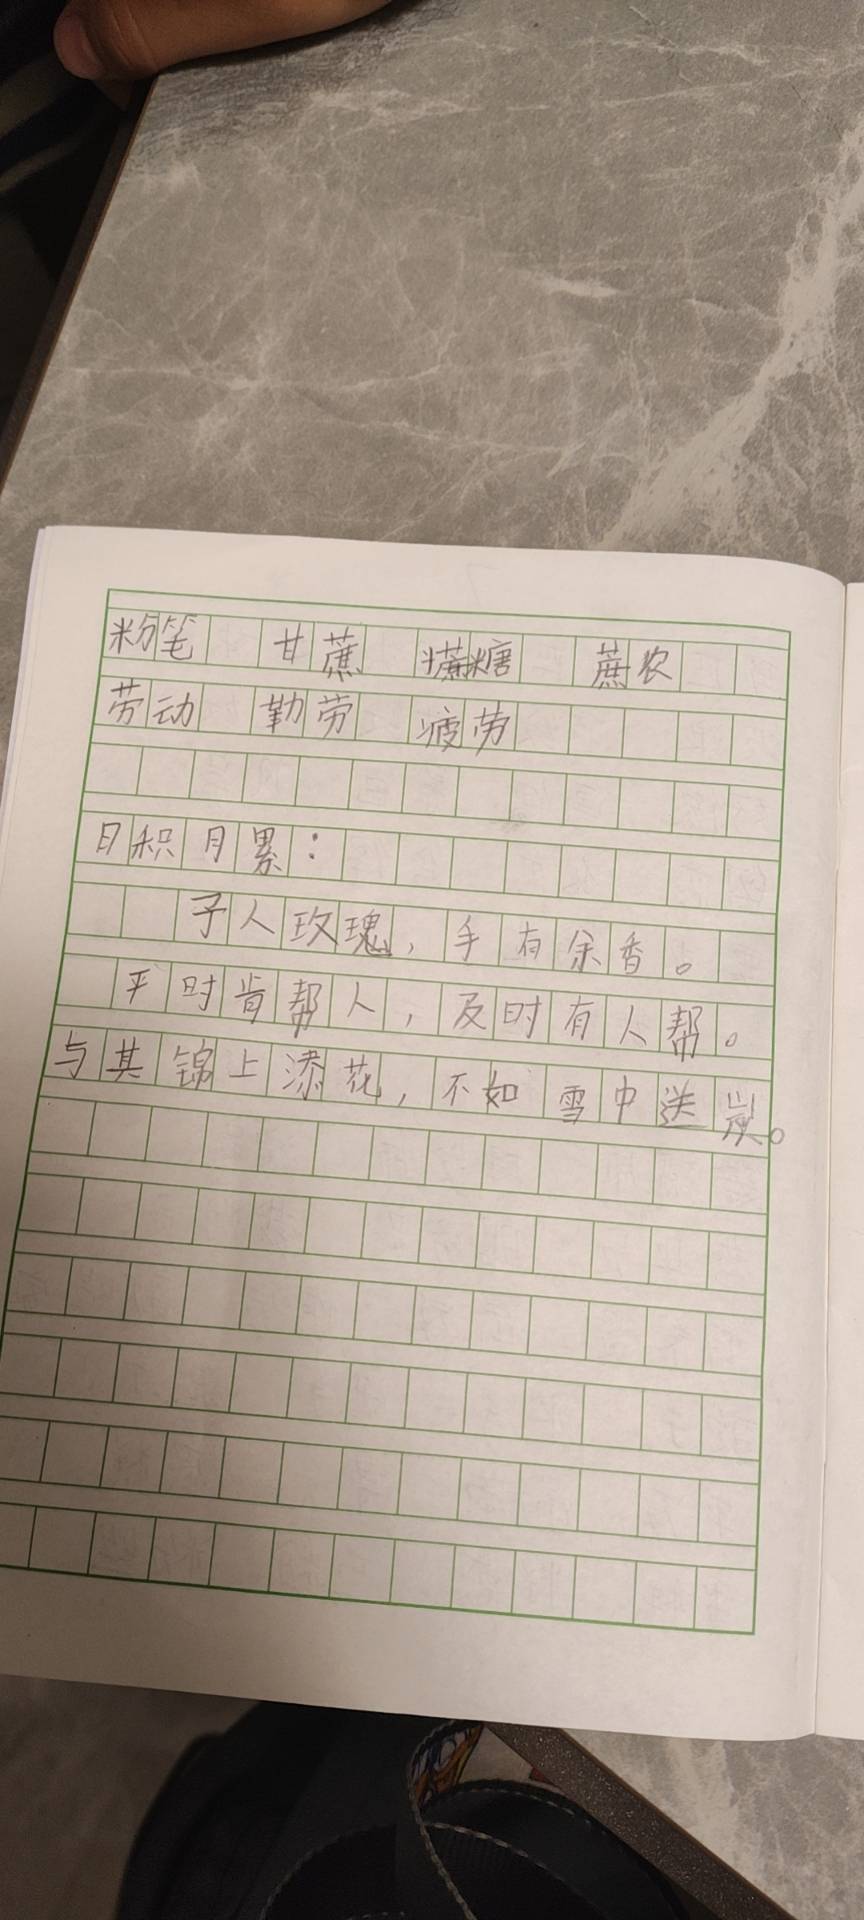 粉笔 甘蔗 蔗糖 蔗农
劳动 勤劳 疲劳
日积月累：
予人玫瑰，手有余香。
平时肯帮人，及时有人帮。
与其锦上添花，不如雪中送炭。